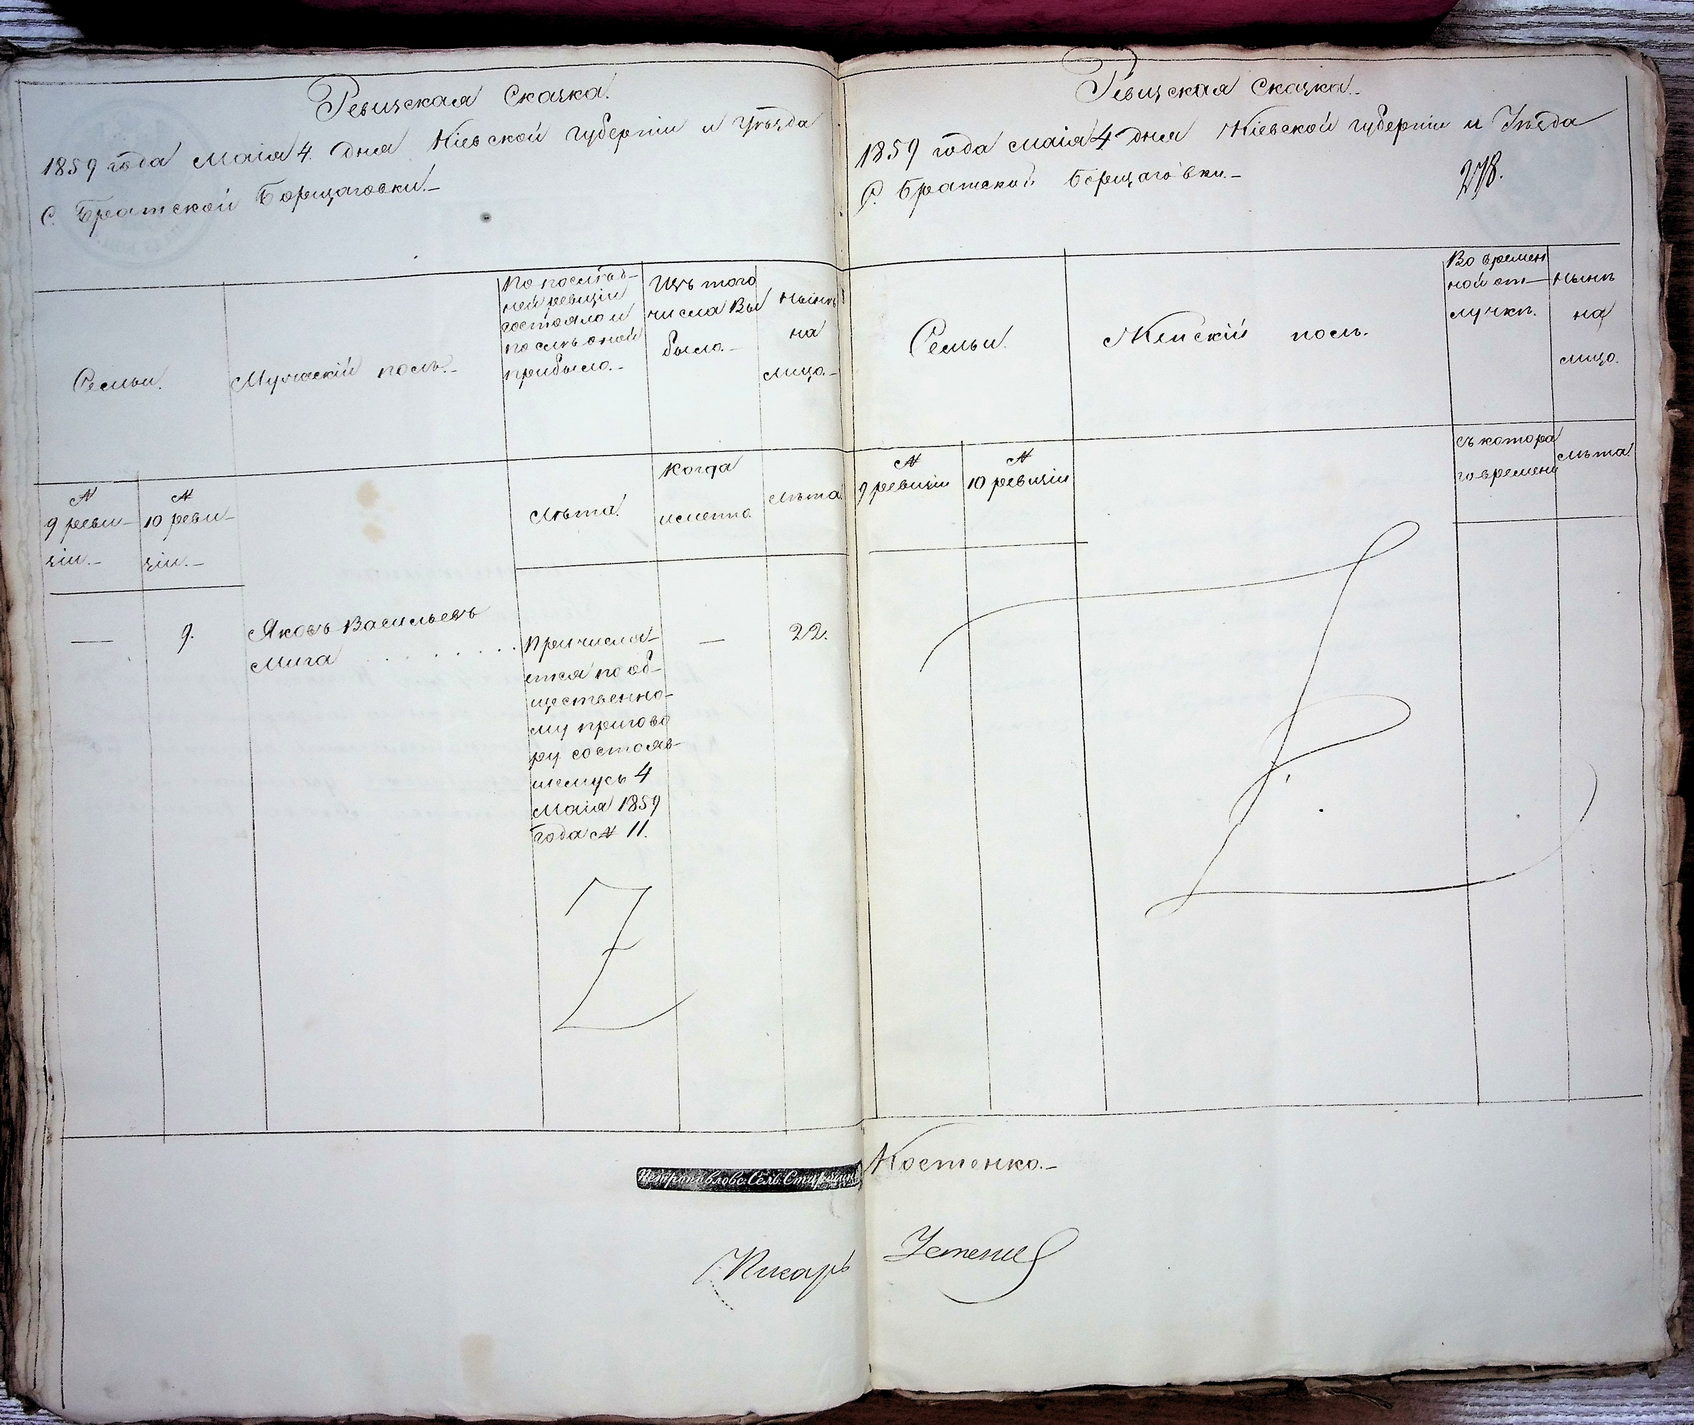 Ревизская Сказка.
1859 года Маія 4. дня Кіевской губерніи и Уѣзда
С. Братской Борщаговки.
Семьи.
Мужескій полъ.
По послѣд-
ней ревизіи
состояло и
послѣ оной
прибыло.
Изъ того
числа Вы
было.
Нынѣ
на
лицо.
№
9 реви-
зіи.
№
10 реви-
зіи.
Лѣта.
Когда
именно
Лѣта
— 9. Яковъ Васильевъ
Мига
Причисля-
ется по об-
щественно-
му пригово
ру состояв-
шемусь 4
Маія 1859
года № 11.
— 22.
Петропавловс. Сельс. Старшина
Писарь
Ревизская Сказка.
1859 года Маія 4 дня Кіевской губерніи и Уѣзда
С. Братской Борщаговки.
278.
Семьи.
Женскій полъ.
Во времен
ной от-
лучкѣ.
Нынѣ
на
лицо.
№
9 ревизіи
№
10 ревизіи
Съ котора
го времени
Лѣта
Костенко.